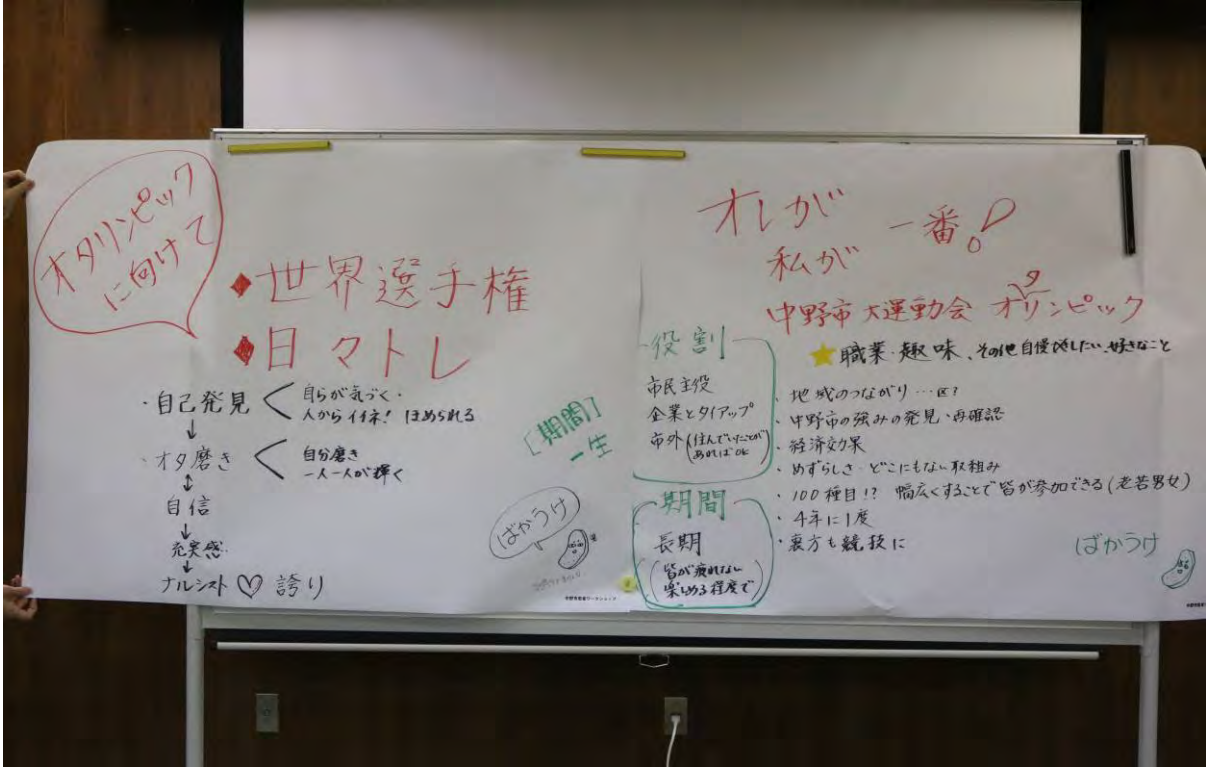 オタリンピック
に向けて
◆世界選手権
◆日々トレ
・自己発見 < 自らが気づく・
人からイイネ! ほめられる
↓
・オタ磨き < 自分磨き
一人一人が輝く
↕
自信
↓
充実感
↓
ナルシスト♡誇り
[期間]
一生
ばかうけ
オレが
私が 一番!
中野市 大運動会 オリンピック
タ
★職業・趣味、その他自慢したい、好きなこと
役割
市民主役
企業とタイアップ
市外(住んでいたことが
あればOK)
期間
長期
(皆が疲れない
楽しめる程度で)
・地域のつながり…区?
・中野市の強みの発見・再確認
・経済効果
・めずらしさ・どこにもない取組み
・100種目!? 幅広くすることで皆が参加できる(老若男女)
・4年に1度
・裏方も競技に
ばかうけ